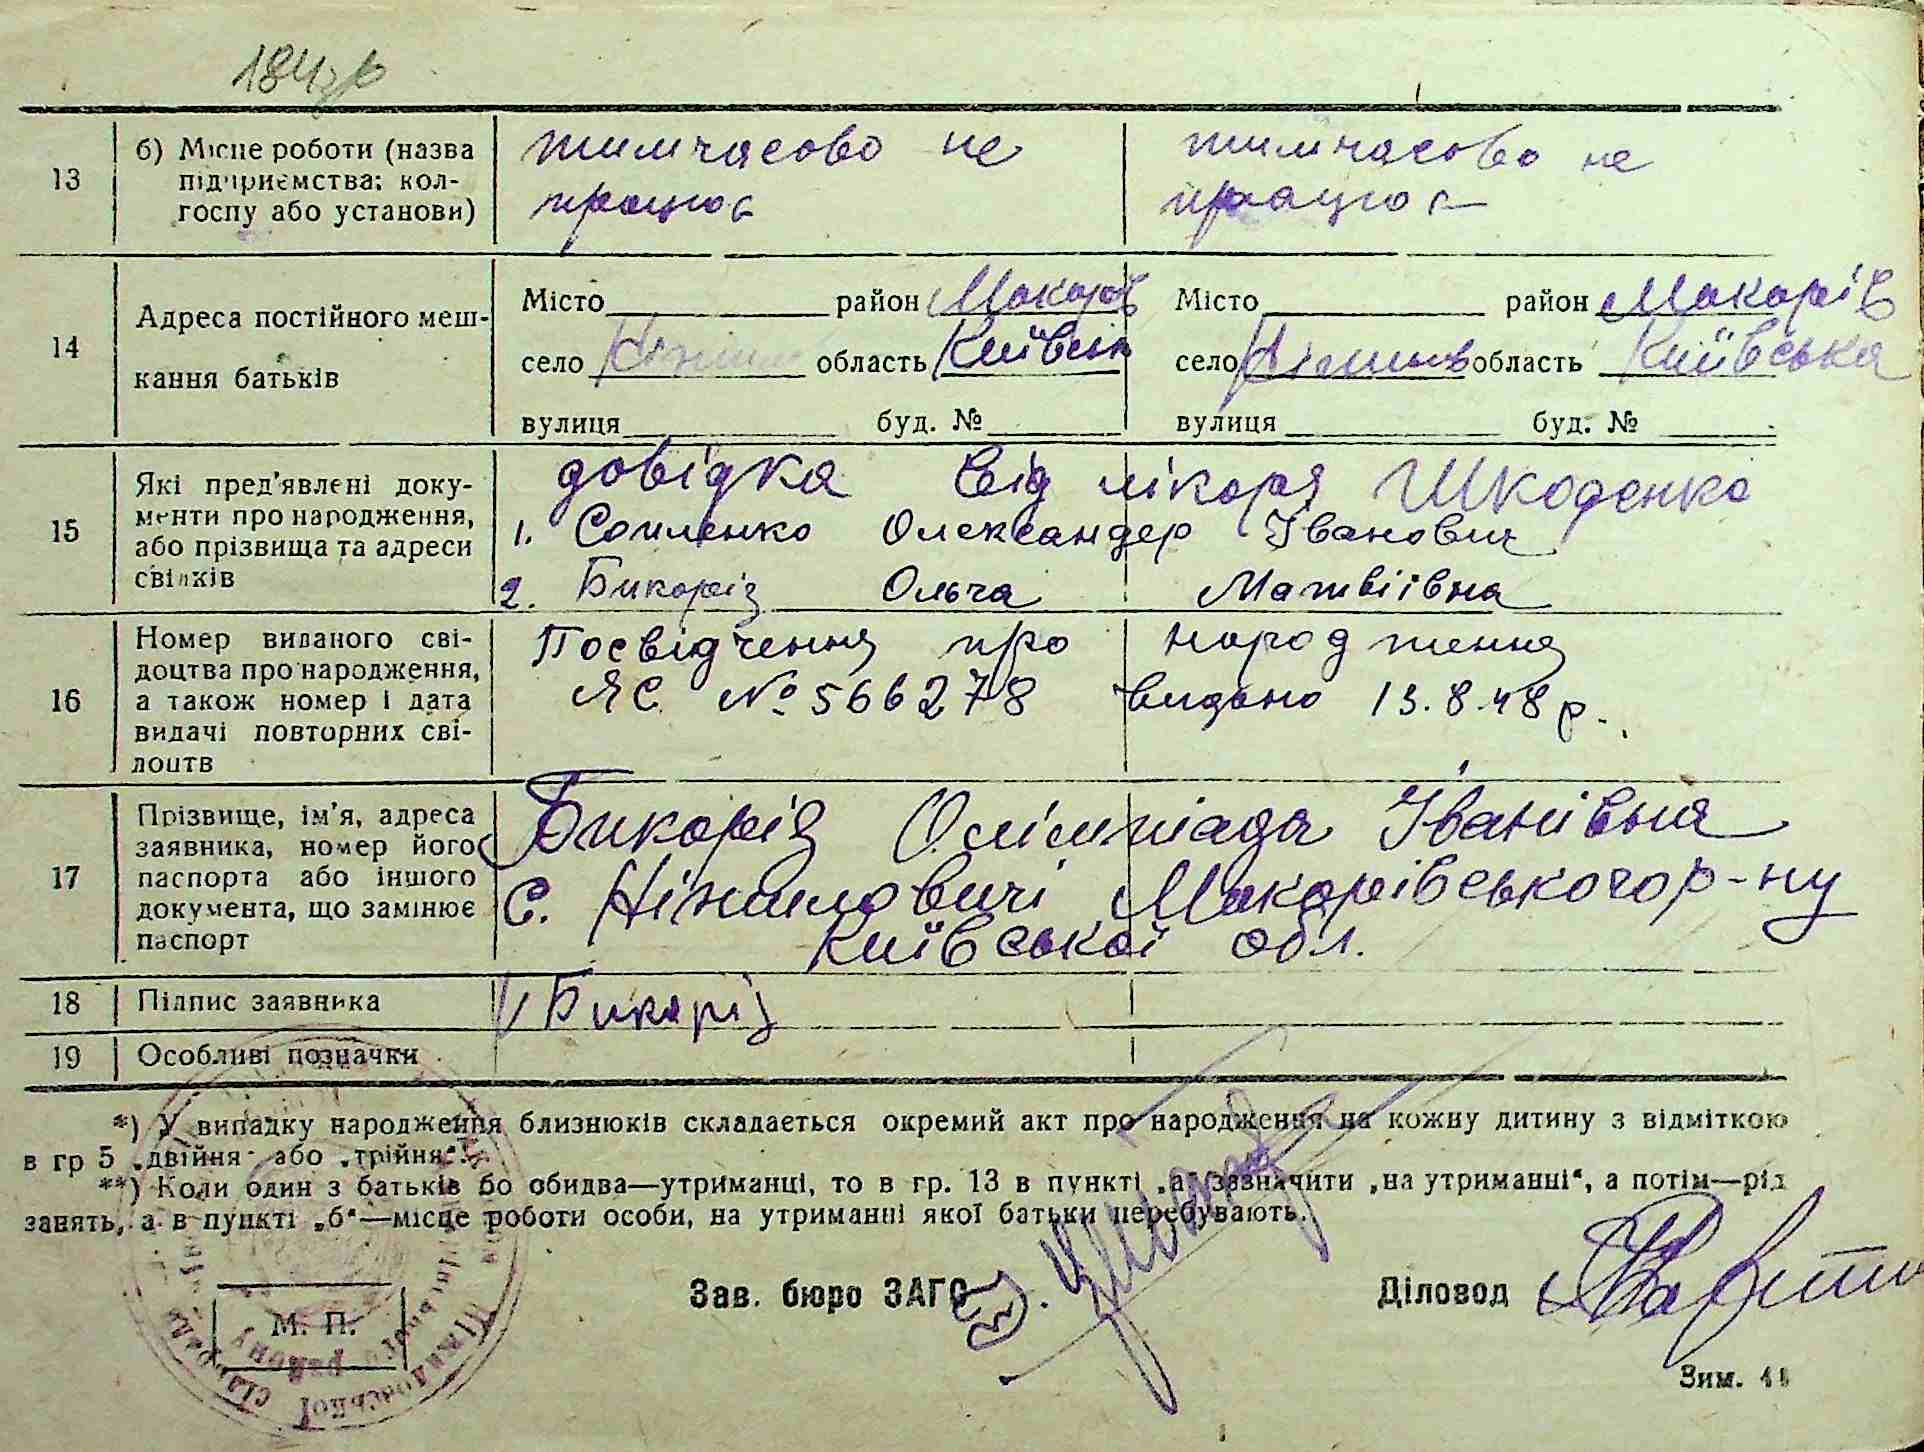 184зв
13 б) Місце роботи (назва підприємства: кол-госпу або установи) тимчасово не працює тимчасово не працює
14 Адреса постійного меш-кання батьків
Місто район Макарів Місто район Макарів
село область Київськ село область Київська
вулиця буд. № вулиця буд. №
15 Які пред'явлені доку-менти про народження, або прізвища та адреси свідків
довідка від лікаря Шкоденко
1. Сомленко Олександер Іванович
2. Бикоріз Ольга Матвіївна
16 Номер виданого сві-доцтва про народження, а також номер і дата видачі повторних сві-доцтв
Посвідчення про народження
ЯС № 566278 видано 13.8.48 р.
17 Прізвище, ім'я, адреса заявника, номер його паспорта або іншого документа, що замінює паспорт
Бикоріз Олімпіада Іванівна
с. Ніжиловичі Макарівського р-ну
Київської обл.
18 Підпис заявника Бикоріз
19 Особливі позначки
*) У випадку народження близнюків складається окремий акт про народження на кожну дитину з відміткою
в гр 5 „двійня" або „трійня".
**) Коли один з батьків бо обидва—утриманці, то в гр. 13 в пункті „а" зазначити „на утриманні", а потім—рід
занять, а в пункті „б"—місце роботи особи, на утриманні якої батьки перебувають.
Зав. бюро ЗАГС Діловод
М. П.
Зим.